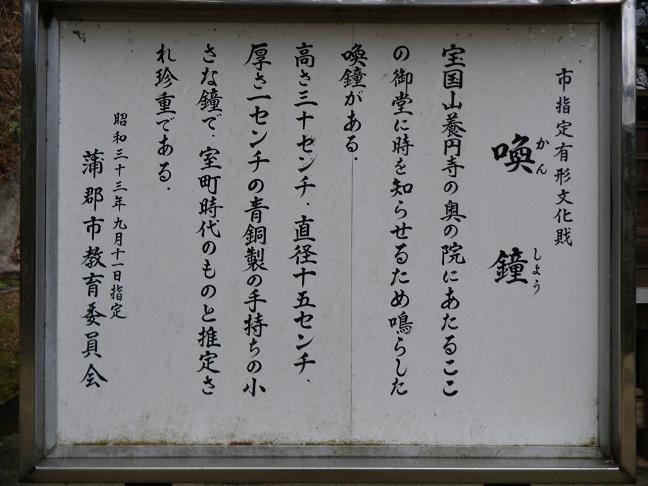 市指定有形文化財
喚鐘
かん
しょう
宝国山養円寺の奥の院にあたるここ
の御堂に時を知らせるため鳴らした
喚鐘がある。
高さ三十センチ、直径十五センチ、
厚さ一センチの青銅製の手持ちの小
さな鐘で、室町時代のものと推定さ
れ珍重である。
昭和三十三年九月十一日指定
蒲郡市教育委員会